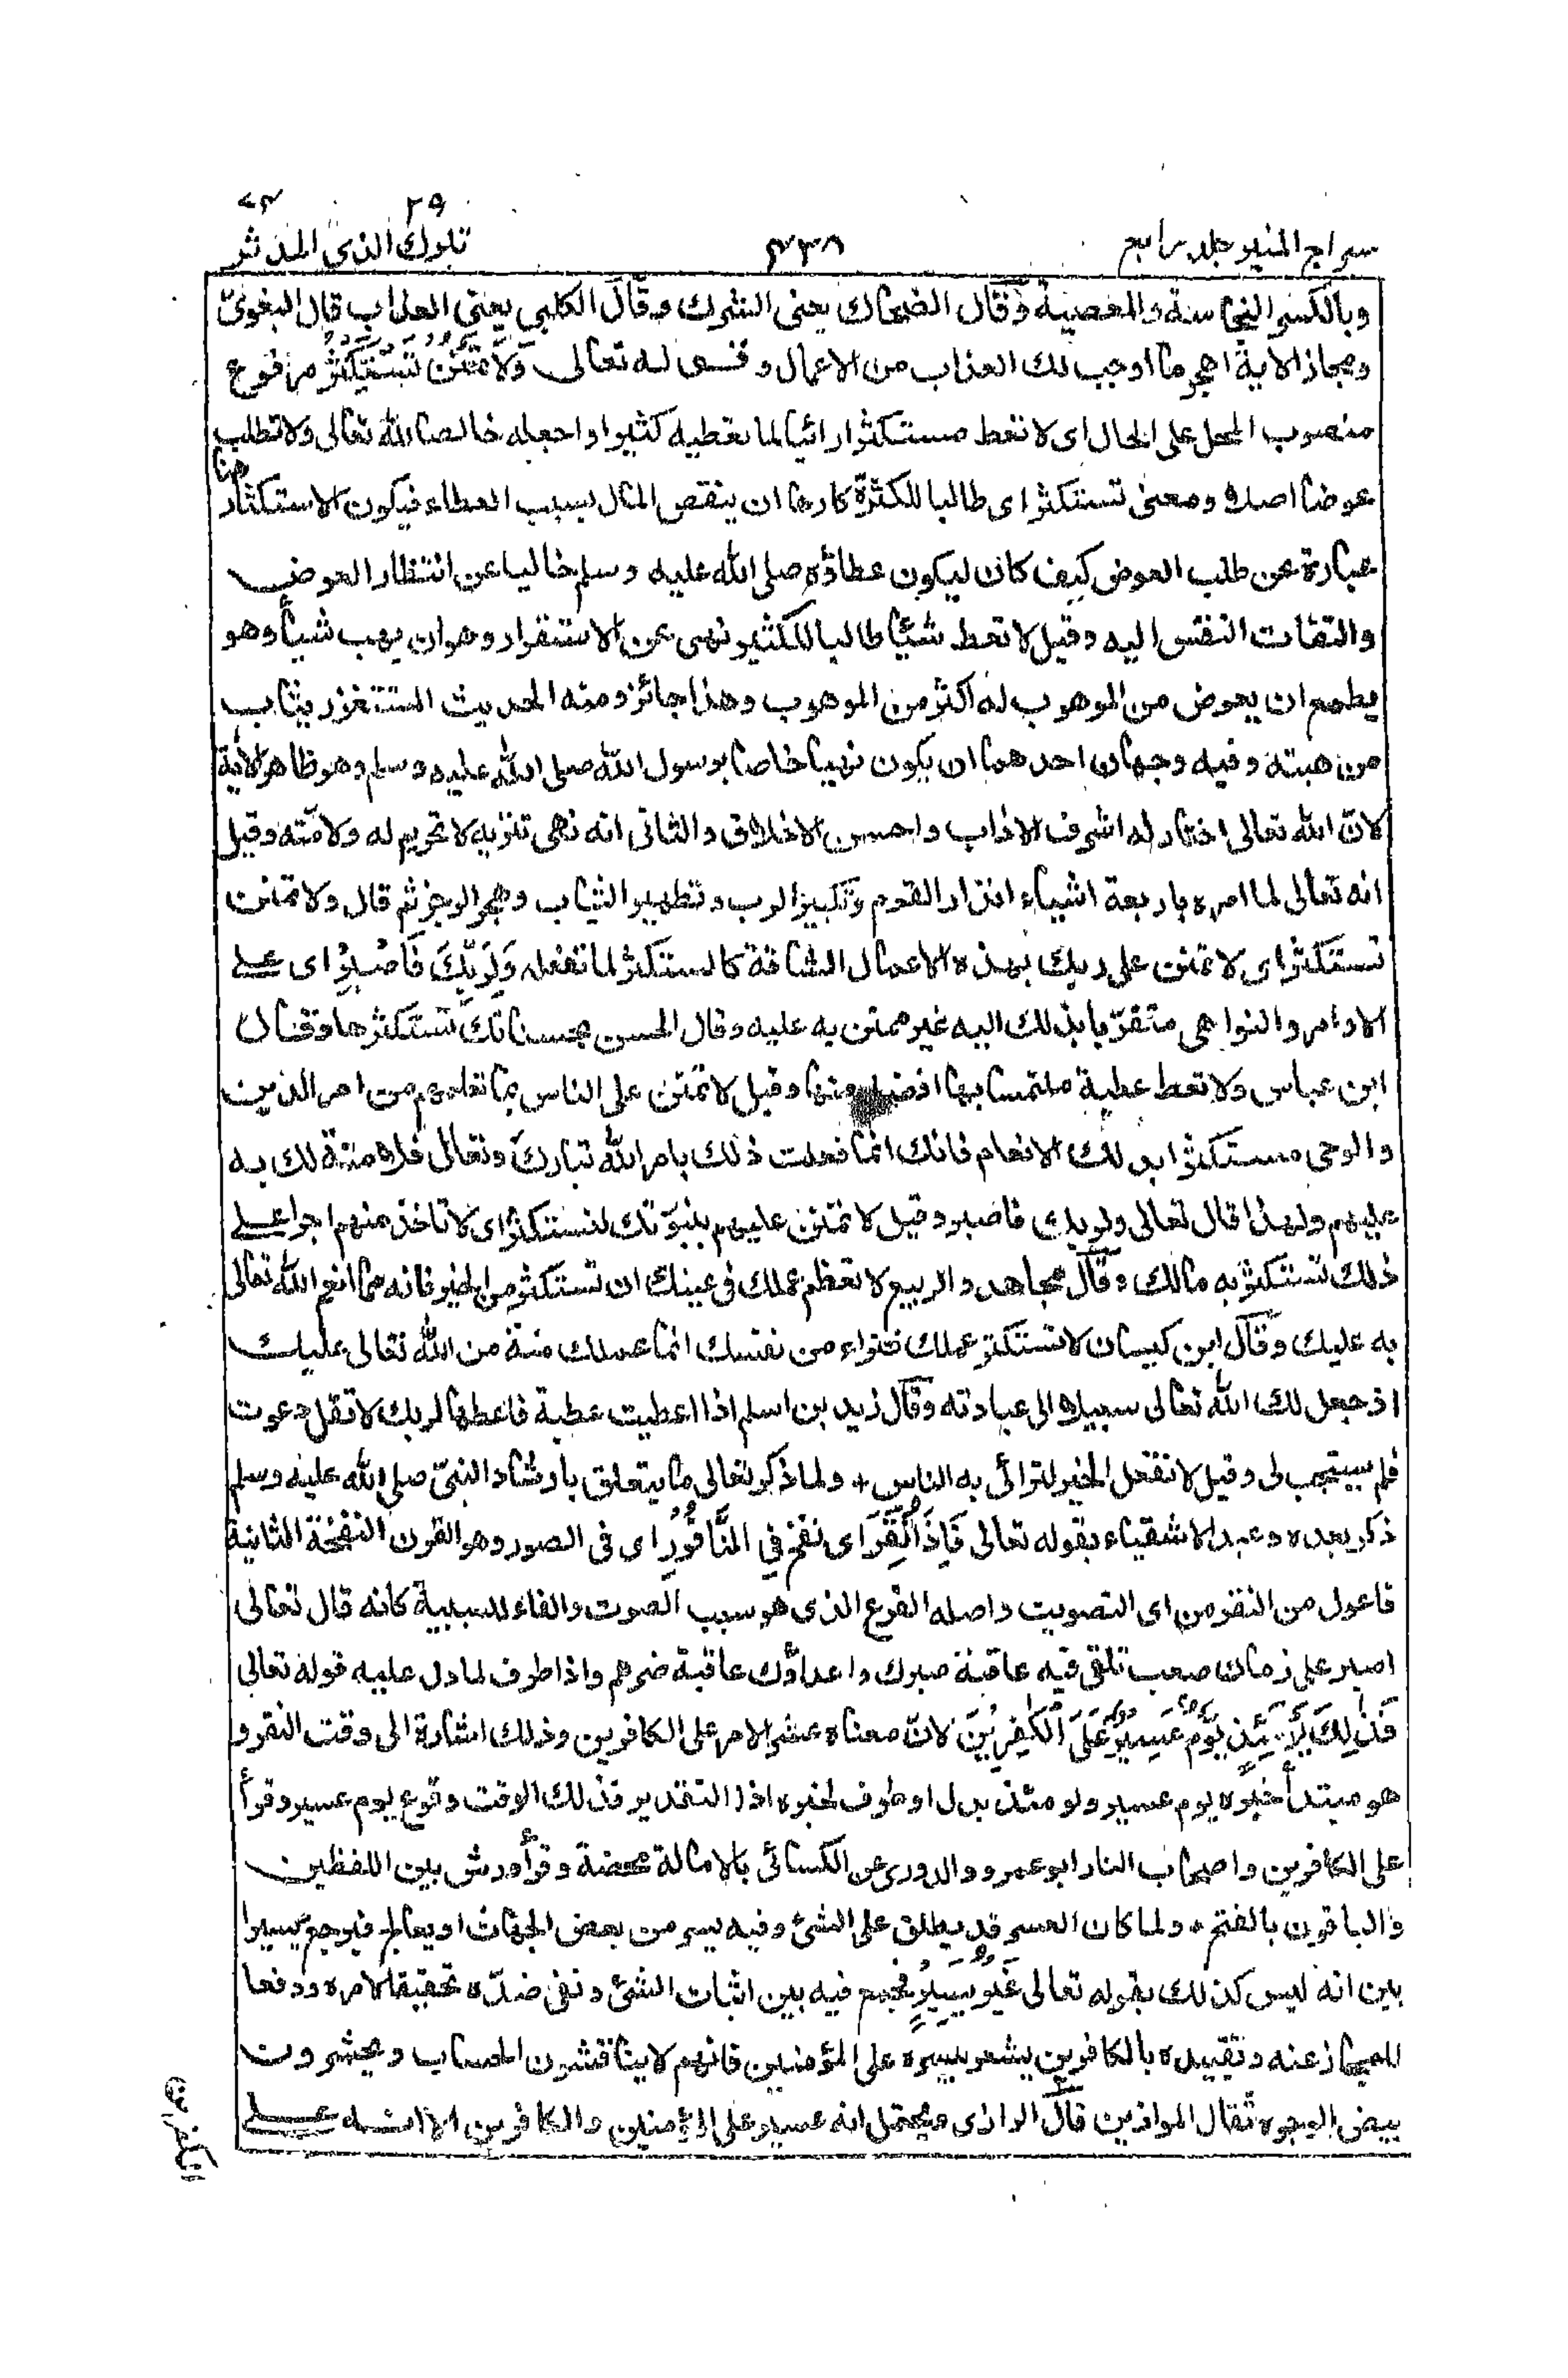 سراج المنير جلد رابع
٤٣٨
٢٩ ٧٤
تبارك الذى المدثر
وبالكسر النجاسة والمعصية وقال الضحاك يعنى الشرك وقال الكلبي يعنى العذاب قال البغوىّ
ومجاز الاية اهجر ما اوجب لك العذاب من الاعمال و قوله تعالى وَلَا تَمْنُنْ تَسْتَكْثِرُ مرفوع
منصوب المحل على الحال اى لا تعط مستكثرا رائيا لما تعطيه كثيرا واجعله خالصا لله تعالى ولا تطلب
عوضا اصلا ومعنى تستكثر اى طالبا للكثرة كارها ان ينقص المال بسبب العطاء فيكون الاستكثار هنا
عبارة عن طلب العوض كيف كان ليكون عطاؤه صلى الله عليه وسلم خاليا عن انتظار العوض
والتفات النفس اليه وقيل لا تعط شيئا طالبا للكثير نهى عن الاستقرار وهو ان يهب شيأ وهو
يطمع ان يعوض من الموهوب له اكثر من الموهوب وهذا جائز ومنه الحديث المستغزر يثاب
من هبته وفيه وجهان احدهما ان يكون نهيا خاصا برسول الله صلى الله عليه وسلم وهو ظاهر الاية
لانّ الله تعالى اختار له اشرف الاداب واحسن الاخلاق والثانى انه نهى تنزيه لا تحريم له ولامّته وقيل
انه تعالى لما امره باربعة اشياء انذار القوم وتكبير الرب وتطهير الثياب وهجر الرجز ثم قال ولا تمنن
تستكثر اى لا تمنن على ربك بهذه الاعمال الشاقة كالمستكثر لما تفعله وَلِرَبِّكَ فَاصْبِرْ اى على
الاوامر والنواهى متقرّبا بذلك اليه غير ممتن به عليه وقال الحسن بحسناتك تستكثرها وقال
ابن عباس ولا تعط عطية ملتمسا بها افضل منها وقيل لا تمنن على الناس بما تعلمهم من امر الدين
والوحى مستكثرا بذلك الانعام فانك انما فعلت ذلك بامر الله تبارك وتعالى فلا منة لك به
عليهم ولهذا قال تعالى ولربك فاصبر وقيل لا تمنن عليهم بنبوّتك لتستكثر اى لا تاخذ منهم اجرا على
ذلك تستكثر به مالك وقال مجاهد والربيع لا تعظم عملك فى عينك ان تستكثر من الخير فانه مما انعم الله تعالى
به عليك وقال ابن كيسان لا تستكثر عملك فتراه من نفسك انما عملك منة من الله تعالى عليك
اذ جعل لك الله تعالى سبيلا الى عبادته وقال زيد بن اسلم اذا اعطيت عطية فاعطها لربك لا تقل دعوت
فلم يستجب لى وقيل لا تفعل الخير لترائى به الناس ولما ذكر تعالى ما يتعلق بارشاد النبىّ صلى الله عليه وسلم
ذكر بعده وعيد الاشقياء بقوله تعالى فَاِذَا نُقِرَ اى نفخ فِي النَّاقُوْرِ اى فى الصور وهو القرن النفخة الثانية
فاعول من النقر من اى التصويت واصله القرع الذى هو سبب الصوت والفاء للسببية كانه قال تعالى
اصبر على زمان صعب تلقى فيه عاقبة صبرك واعداؤك عاقبة ضرهم واذا ظرف لما دل عليه قوله تعالى
فَذٰلِكَ يَوْمَئِذٍ يَوْمٌ عَسِيْرٌ عَلَى الْكٰفِرِيْنَ لانّ معناه عسر الامر على الكافرين وذلك اشارة الى وقت النقر و
هو مبتدأ خبره يوم عسير ويومئذ بدل او ظرف لخبره اذا التقدير فذلك الوقت وقوع يوم عسير وقرأ
على الكافرين واصحاب النار ابو عمرو والدورى عن الكسائى بالامالة محضة وقرأ ورش بين اللفظين
والباقون بالفتح ولما كان العسر قد يطلق على الشئ وفيه يسر من بعض الجهات او يعالج فيرجع يسيرا
بين انه ليس كذلك بقوله تعالى غَيْرُ يَسِيْرٍ فجمع فيه بين اثبات الشئ ونفى ضدّه تحقيقا لامره ودفعا
للمجاز عنه وتقييده بالكافرين يشعر بيسره على المؤمنين فانهم لا يناقشون الحساب ويحشرون
بيض الوجوه ثقال الموازين قال الرازى ويحتمل انه عسير على المؤمنين والكافرين الا انه على
الكافرين